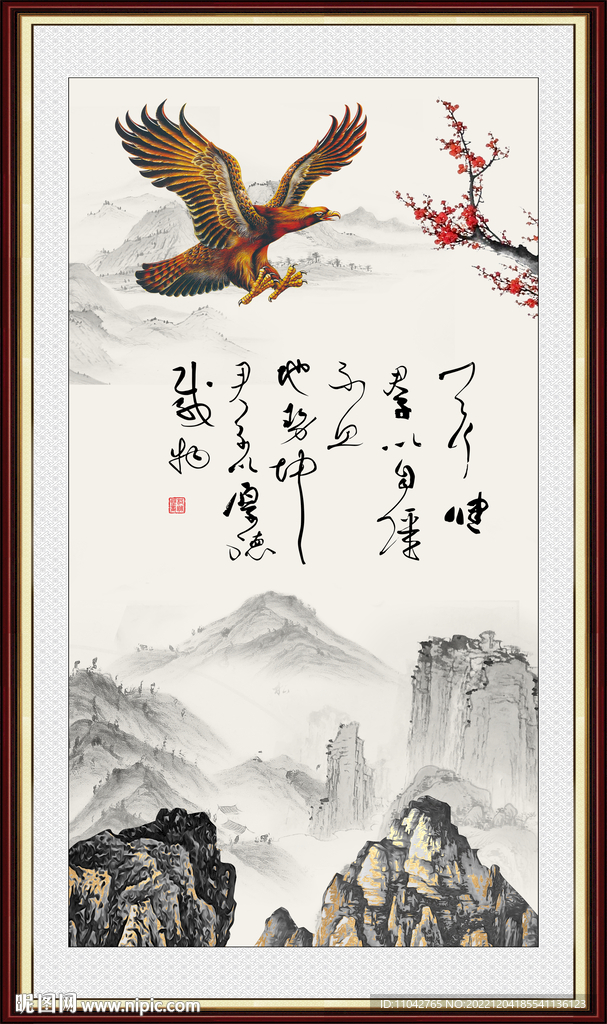 天行健
君子以自强
不息
地势坤
君子以厚德
载物
昵图网 www.nipic.com
ID:11042765 NO:20221204185541136123